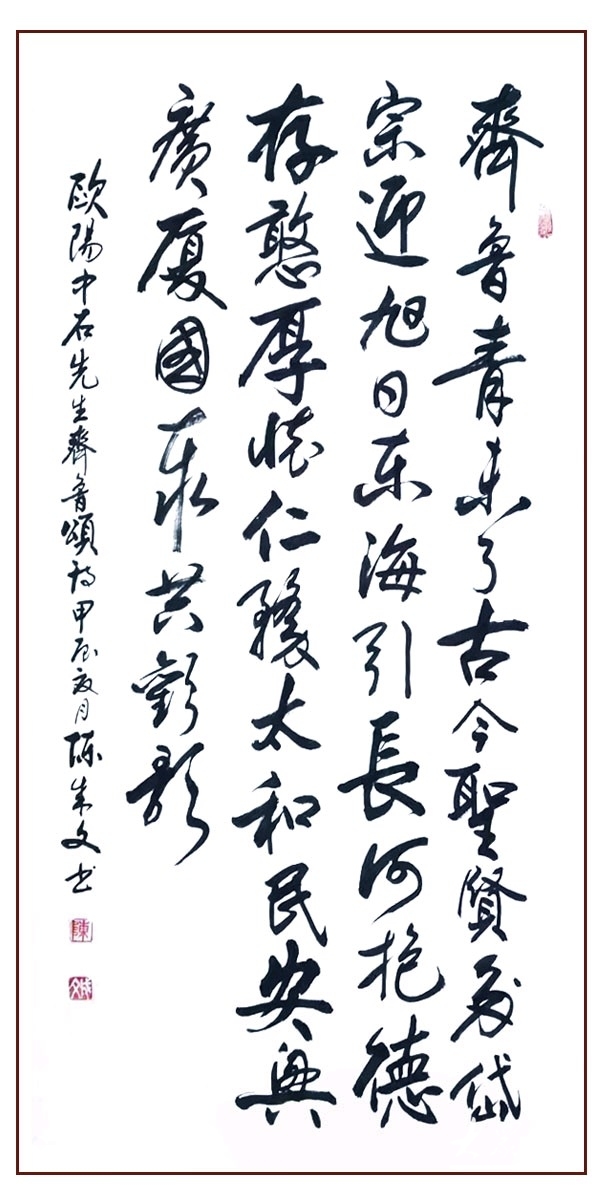 齊魯青未了古今聖賢多岱
宗迎旭日東海引長河抱德
存憨厚懷仁太和民安興
廣厦國泰共歡歌
歐陽中石先生齊魯頌詩甲辰夏月陳文书
陳